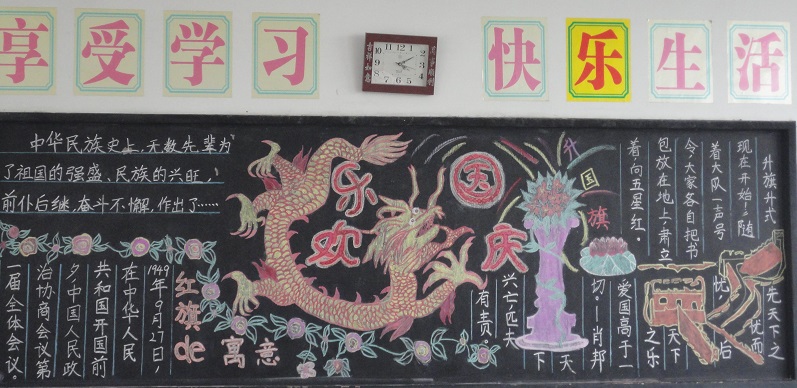 享受学习
快乐生活
中华民族史上,无数先辈为
了祖国的强盛、民族的兴旺,
前仆后继,奋斗不懈,作出了……
1949年9月27日,
在中华人民
共和国开国前
夕中国人民政
治协商会议第
一届全体会议。
红旗de寓意
欢乐
国庆
升国旗
升旗升式
现在开始。”随
着大队一声号
令,大家各自把书
包放在地上肃立
着向五星红。
先天下之
忧而
忧,后
天下
之乐
爱国高于一
切。——肖邦
天下
兴亡匹夫
有责。